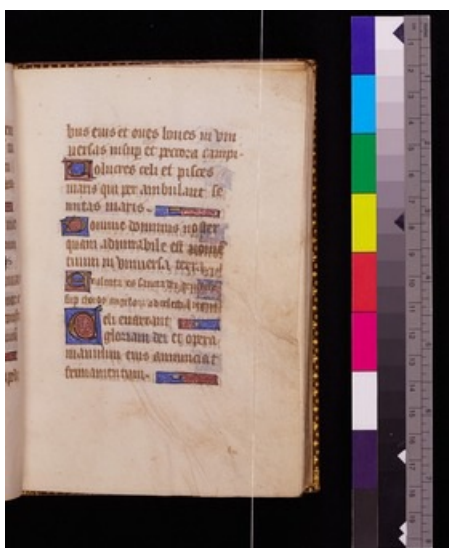 bus eius et oues boues in vni
uersas insup et pecora campi
Volucres celi et pisces
maris qui per ambulant se
mitas maris
Domine dominus noster
quam admirabile est nomē
tuum in vniuersa terra
exaltata es sancta dei
sup choros angeloꝝ ad celestia
Celi enarrant
gloriam dei et opera
manuum eius annunciāt
firmamentum